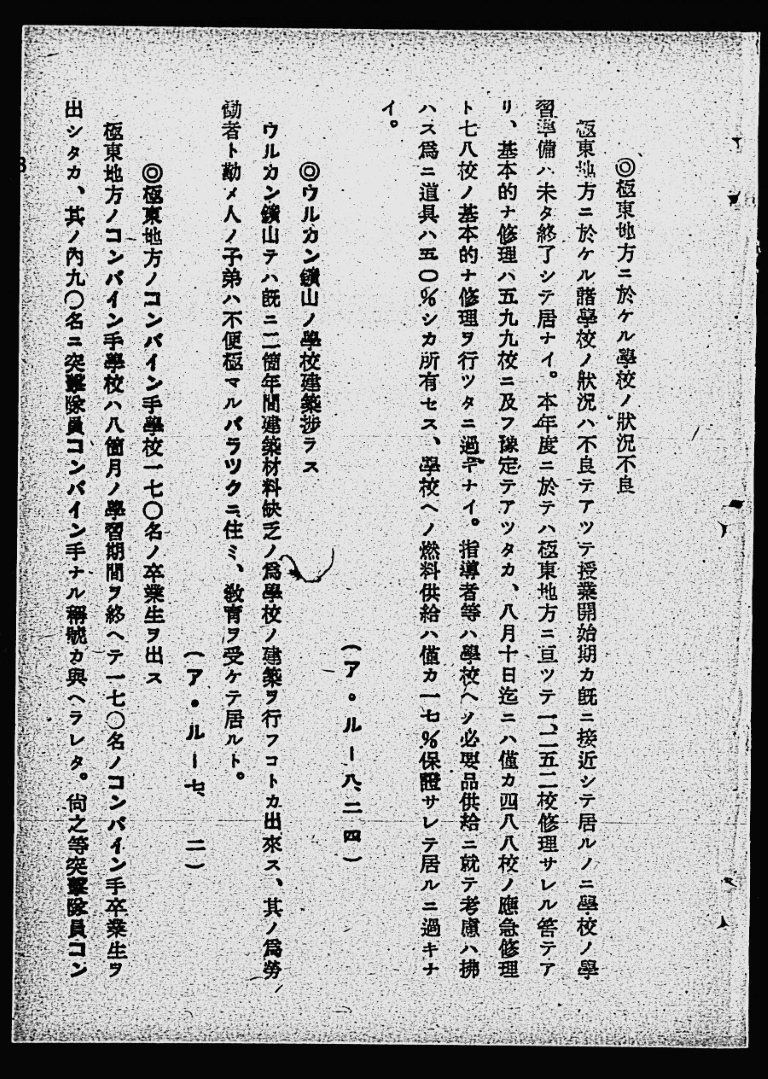 ◎極東地方ニ於ケル學校ノ狀況不良
極東地方ニ於ケル諸學校ノ狀況ハ不良テアツテ授業開始期カ既ニ接近シテ居ルノニ學校ノ學
習準備ハ未タ終了シテ居ナイ。本年度ニ於テハ極東地方ニ亘ツテ一、二五二校修理サレル筈テア
リ、基本的ナ修理ハ五九九校ニ及フ豫定テアツタカ、八月十日迄ニハ僅カ四八八校ノ應急修理
ト七八校ノ基本的ナ修理ヲ行ツタニ過キナイ。指導者等ハ學校ヘノ必要品供給ニ就テ考慮ハ拂
ハス爲ニ道具ハ五〇%シカ所有セス、學校ヘノ燃料供給ハ僅カ一七%保證サレテ居ルニ過キナ
イ。
(ア・ル―八、二四)
◎ウルカン鑛山ノ學校建築捗ラス
ウルカン鑛山テハ既ニ二箇年間建築材料缺乏ノ爲學校ノ建築ヲ行フコトカ出來ス、其ノ爲勞
働者ト勤メ人ノ子弟ハ不便極マルバラツクニ住ミ、敎育ヲ受ケテ居ルト。
(ア・ル―七、二)
◎極東地方ノコンバイン手學校一七〇名ノ卒業生ヲ出ス
極東地方ノコンバイン手學校ハ八箇月ノ學習期間ヲ終ヘテ一七〇名ノコンバイン手卒業生ヲ
出シタカ、其ノ內九〇名ニ突擊隊員コンバイン手ナル稱號カ與ヘラレタ。尙之等突擊隊員コン